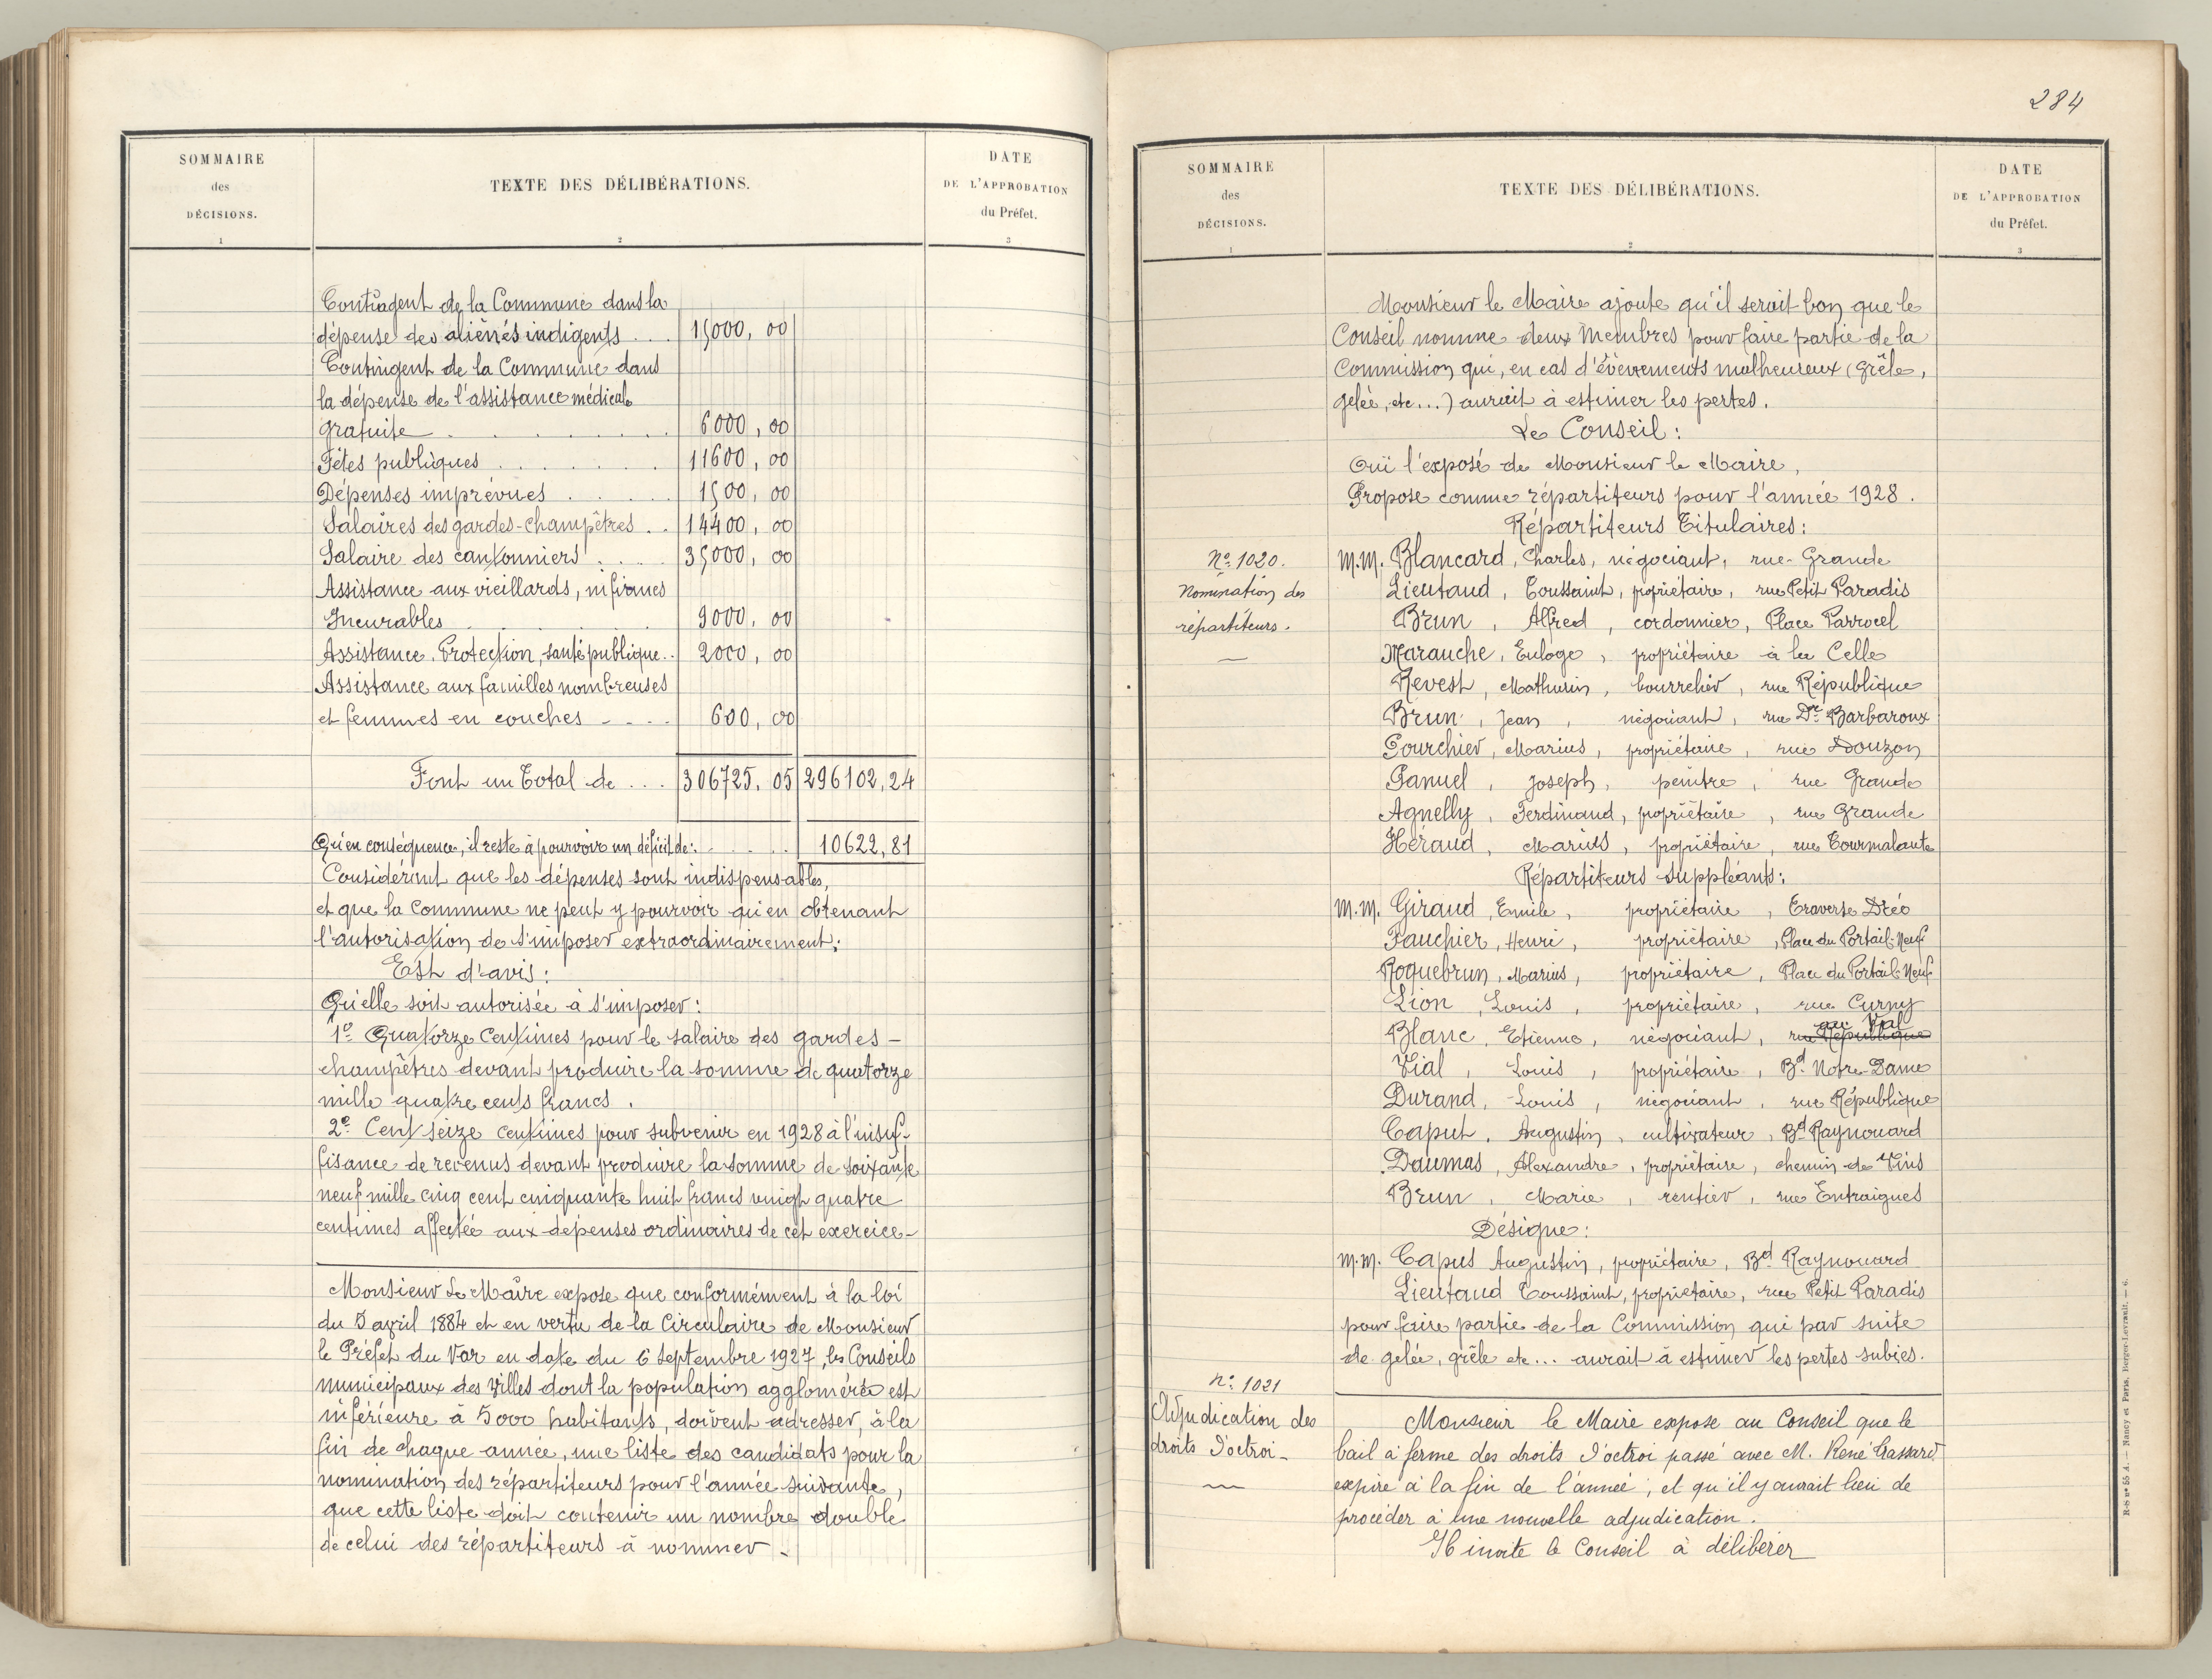 SOMMAIRE
des
DÉCISIONS.
1
TEXTE DES DÉLIBÉRATIONS.
2
DATE
DE L'APPROBATION
du Préfet.
3
Contingent de la Commune dans la
dépense des aliénés indigents .... 15000, 00
Contingent de la Commune dans
la dépense de l'assistance médicale
gratuite . . . . . . 6000, 00
Fêtes publiques . . . . . . 11600, 00
Dépenses imprévues . . . . 1500, 00
Salaires des gardes-champêtres . . 14400, 00
Salaire des cantonniers . . . . 35000, 00
Assistance aux vieillards, infirmes
Incurables . . . . . 9000, 00
Assistance, Protection, santé publique .. 2000, 00
Assistance aux familles nombreuses
et femmes en couches - . . . 600, 00
Font un Total de .... 306725, 05 296102,24
Qu'en conséquence, il reste à pourvoir un déficit de: . . . . . 10622,81
Considérant que les dépenses sont indispensables,
et que la Commune ne peut y pourvoir qu'en obtenant
l'autorisation de s'imposer extraordinairement;
Est d'avis:
Qu'elle soit autorisée à s'imposer:
1º Quatorze Centimes pour le salaire des gardes-
champêtres devant produire la somme de quatorze
mille quatre cents francs.
2º Cent seize centimes pour subvenir en 1928 à l'insuf-
fisance de revenus devant produire la somme de soixante
neuf mille cinq cent cinquante huit francs vingt quatre
centimes affectée aux dépenses ordinaires de cet exercice-
Monsieur Le Maire expose que conformément à la loi
du 5 avril 1884 et en vertu de la Circulaire de Monsieur
le Préfet du Var en date du 6 Septembre 1927, les Conseils
municipaux des villes dont la population agglomérée est
inférieure à 5000 habitants, doivent adresser, à la
fin de chaque année, une liste des candidats pour la
nomination des répartiteurs pour l'année suivante,
que cette liste doit contenir un nombre double
de celui des répartiteurs à nommer -
284
SOMMAIRE
des
DÉCISIONS.
1
TEXTE DES DÉLIBÉRATIONS.
2
DATE
DE L'APPROBATION
du Préfet.
3
Monsieur le Maire ajoute qu'il serait bon que le
Conseil nomme deux Membres pour faire partie de la
Commission qui, en cas d'évèvements malheureux (Grêle,
gelée, etc...) aurait à estimer les pertes.
Le Conseil:
Ouï l'exposé de Monsieur le Maire,
Propose comme répartiteurs pour l'année 1928.
Répartiteurs Titulaires:
Nº 1020.
Nomination des
répartiteurs.
M.M. Blancard, Charles, négociant, rue Grande
Lieutaud, Toussaint, propriétaire, rue Petit Paradis
Brun, Alfred, cordonnier, Place Parrocel
Marauche, Euloge, propriétaire à la Celle
Revest, Mathurin, bourrelier, rue République
Brun, Jean, négociant, rue Dr Barbaroux
Gourchier, Marius, propriétaire, rue Douzon
Ganuel, Joseph, peintre, rue Grande
Agnelly, Ferdinand, propriétaire, rue Grande
Héraud, Marius, propriétaire, rue Tourmalante
Répartiteurs Suppléants:
M.M. Giraud, Emile, propriétaire, Traverse Dréo
Fauchier, Henri, propriétaire, Place du Portail-Neuf
Roquebrun, Marius, propriétaire, Place du Portail-Neuf
Lion, Louis, propriétaire, rue Curny
Blanc, Etienne, négociant, rue République au Val
Vial, Louis, propriétaire, Bd Notre-Dame
Durand, Louis, négociant, rue République
Caput, Augustin, cultivateur, Bd Raynouard
Daumas, Alexandre, propriétaire, chemin de Vins
Brun, Marie, rentier, rue Entraigues
Désigne:
M.M. Capus Augustin, propriétaire, Bd Raynouard
Lieutaud Toussaint, propriétaire, rue Petit Paradis
pour faire partie de la Commission qui par suite
de gelée, grêle etc... aurait à estimer les pertes subies.
nº 1021
Adjudication des
droits d'octroi-
Monsieur le Maire expose au Conseil que le
bail à ferme des droits d'octroi passé avec M. René Gassard
expire à la fin de l'année; et qu'il y aurait lieu de
procéder à une nouvelle adjudication.
Il invite le Conseil à délibérer
R-S nº 55 A. — Nancy et Paris, Berger-Levrault. — 6.